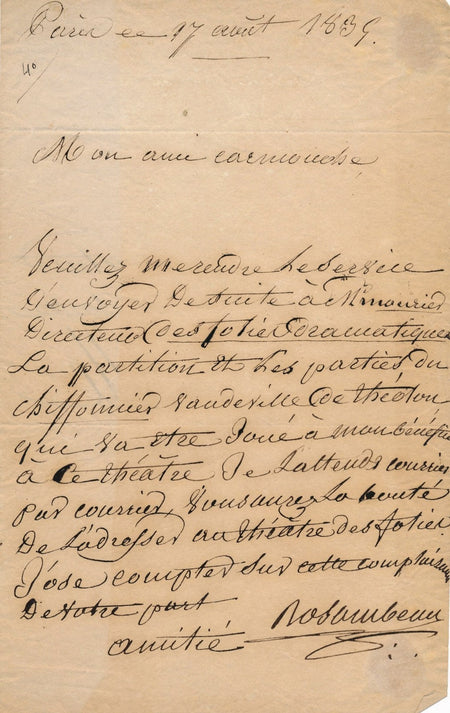 Paris ce 17 août 1839.
4°
Mon ami carmouche
Veuillez me rendre le service
d'envoyer de suite à Mr mourier
Directeur des folies dramatiques
La partition et Les parties du
chiffonnier vaudeville de théolon
qui va être Joué à mon bénéfice
à ce théâtre Je L'attends courrier
par courrier, Vous aurez La bonté
De L'adresser au théâtre des folies.
J'ose compter sur cette complaisance
De votre part
amitié Rosambeau